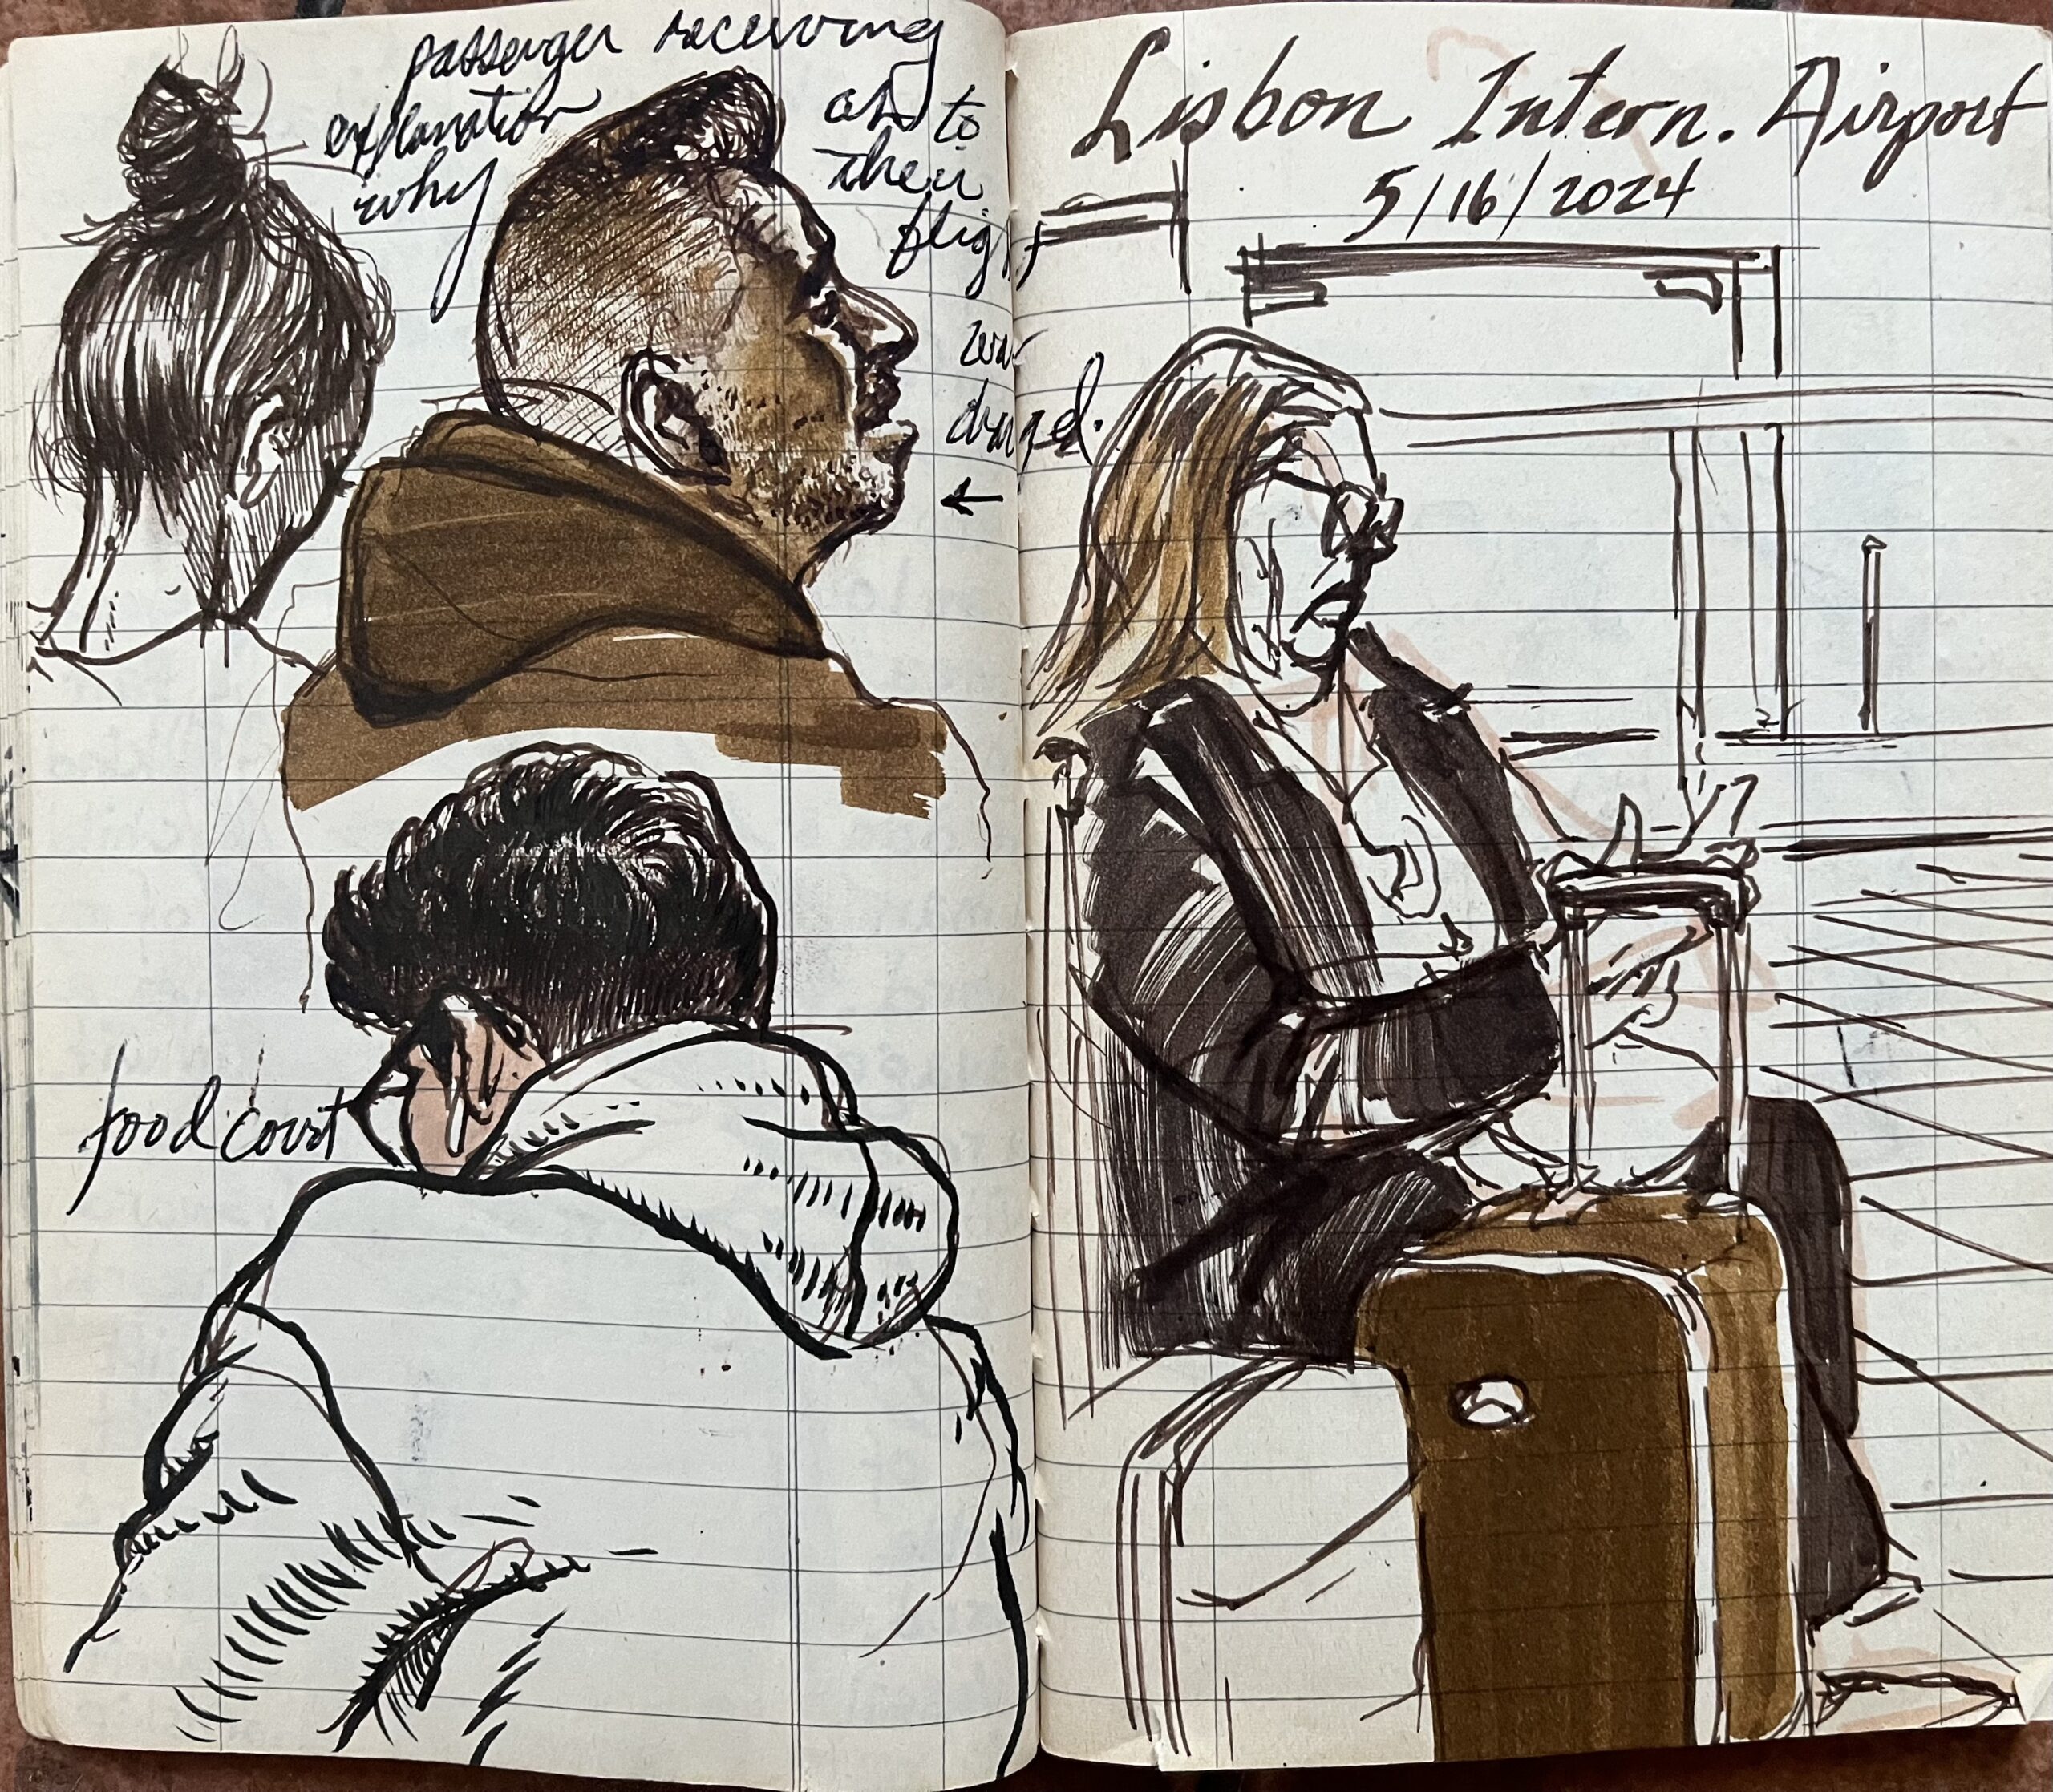 passenger receiving
explanation as to
why their
flight
was
changed.
food court
Lisbon Intern. Airport
5/16/2024